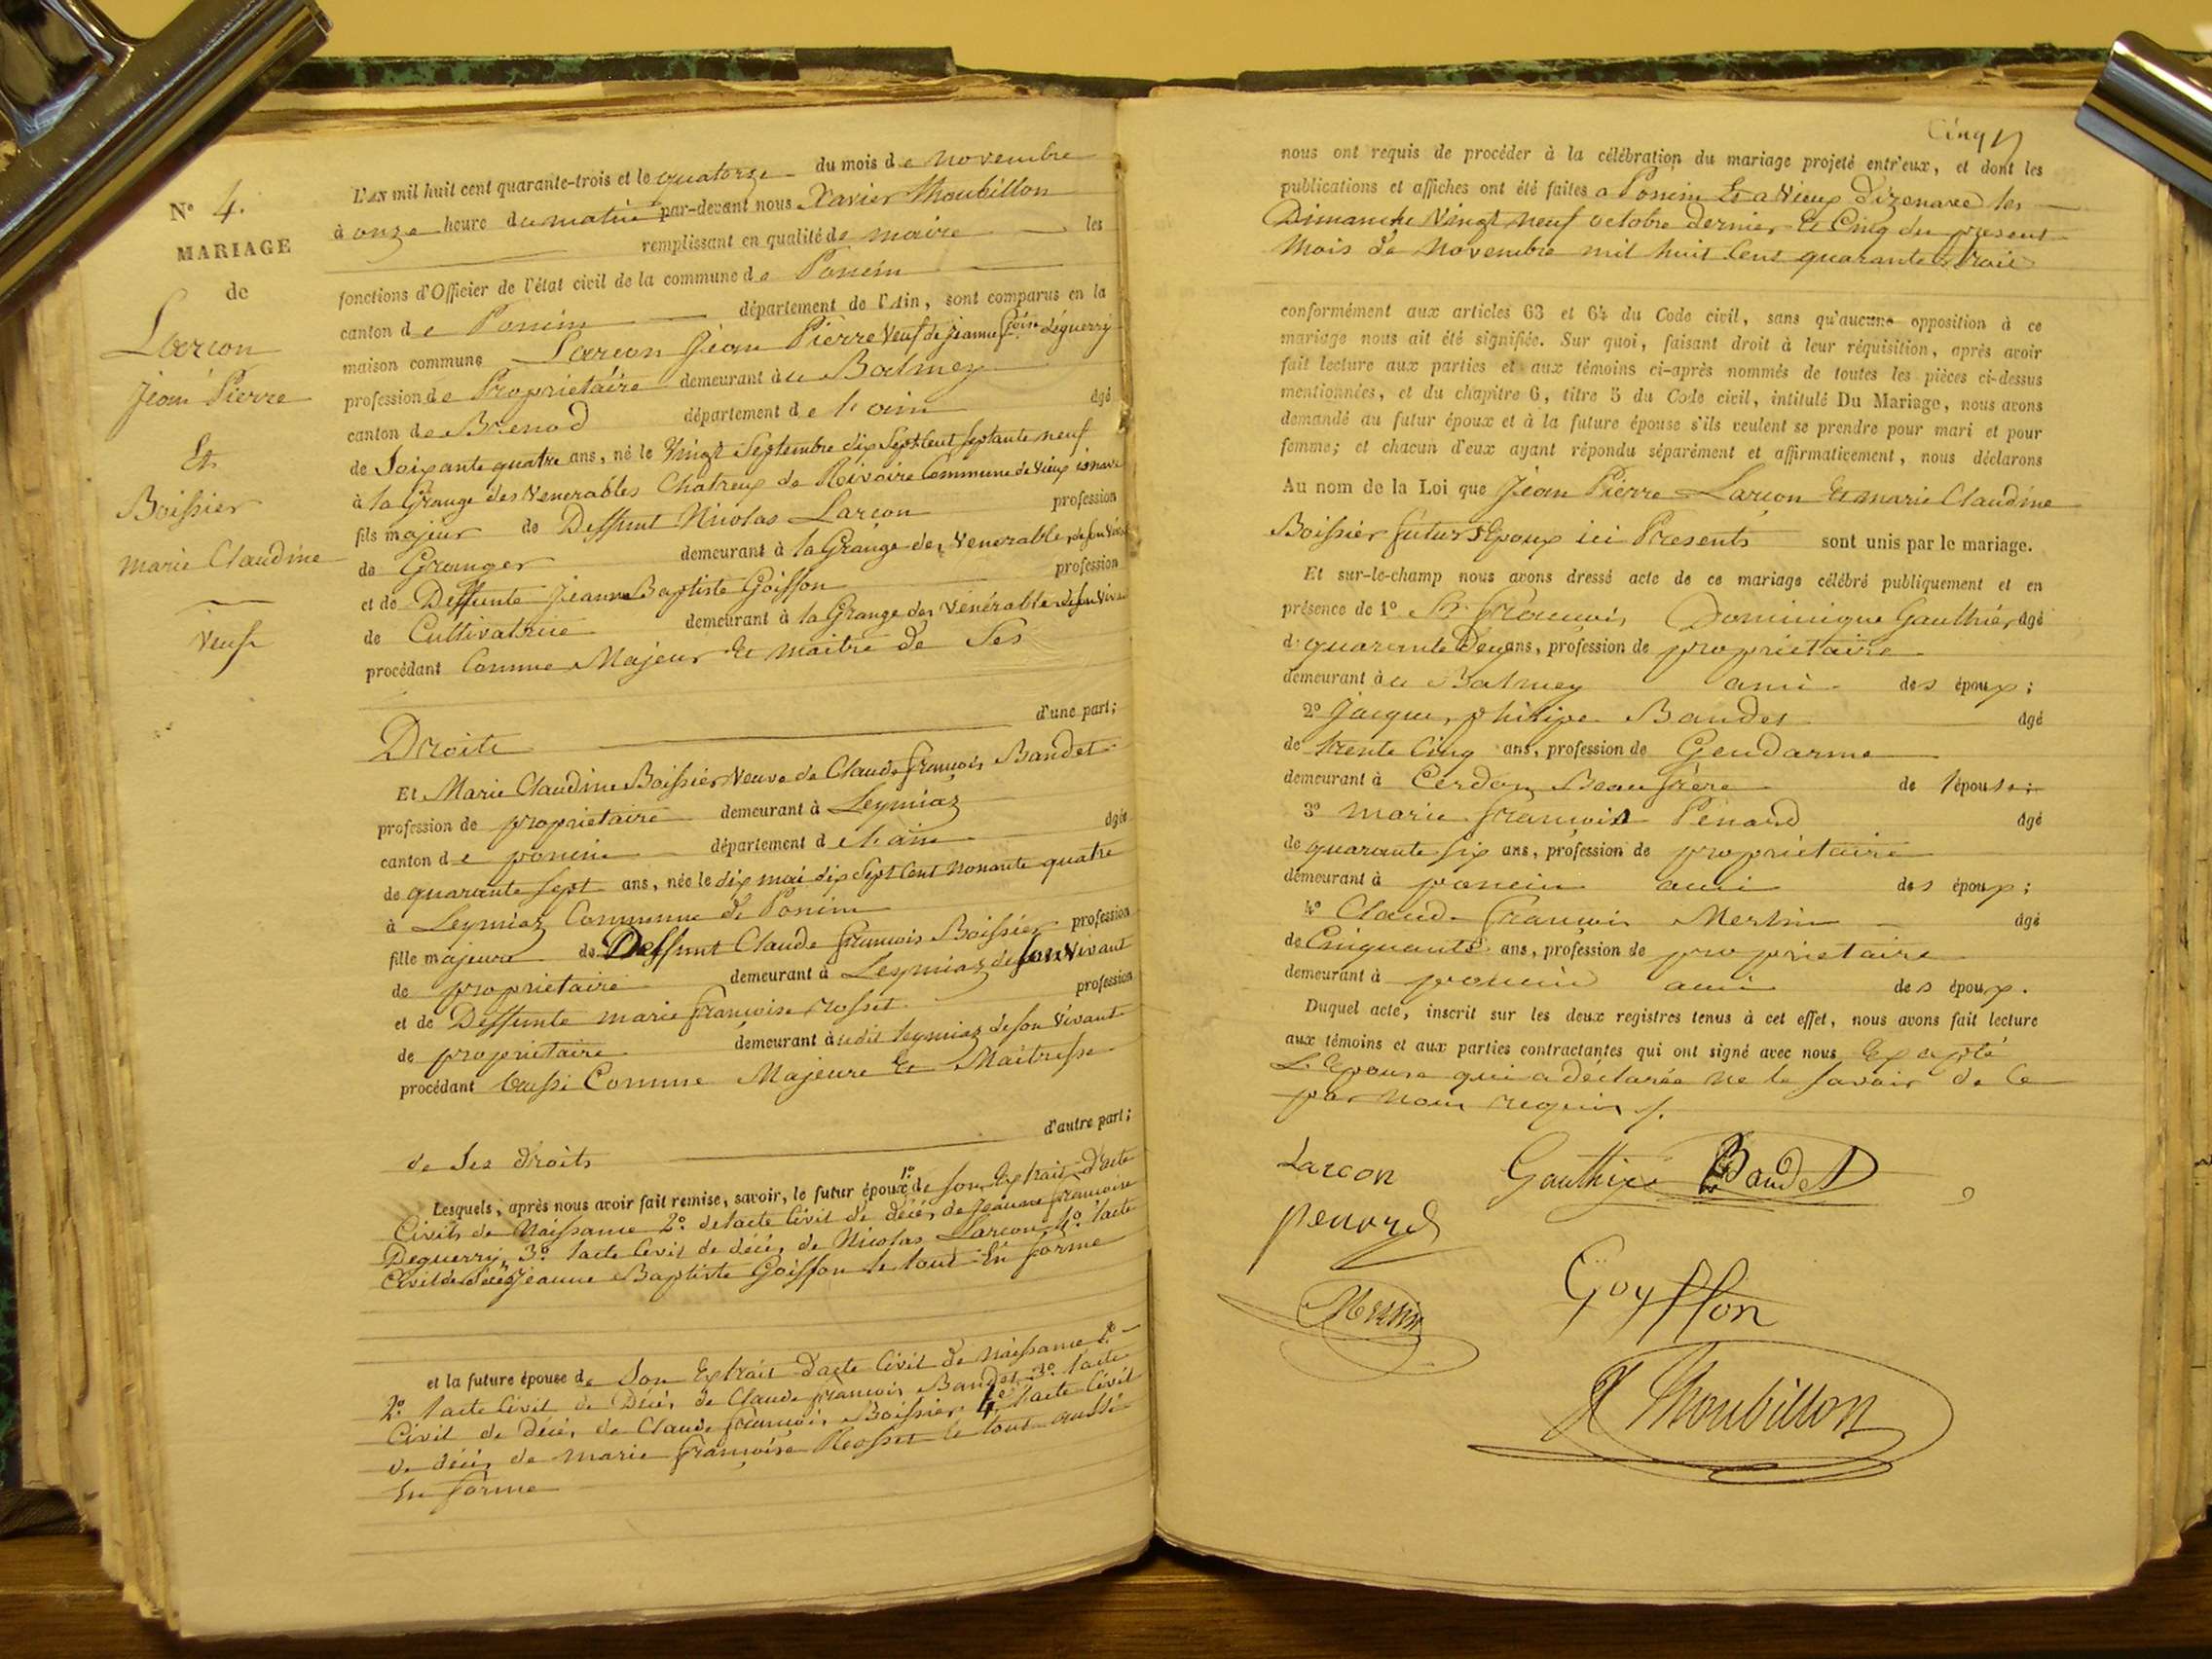 N° 4.
MARIAGE
de
Larcon
Jean Pierre
Et
Boissier
marie Claudine
veufs
L'AN mil huit cent quarante-trois et le quatorze du mois de novembre
à onze heure du matin par-devant nous Xavier Thoubillon
remplissant en qualité de maire les
fonctions d'Officier de l'état civil de la commune de Poncin
canton de Poncin département de l'Ain, sont comparus en la
maison commune Larcon Jean Pierre Veuf de jeanne fçoise déguerry
profession de Propriétaire demeurant au Balmey
canton de Brenod département de l'ain âgé
de Soixante quatre ans, né le Vingt Septembre dix Sept Cent Septante neuf
à la Grange des Venerables Chatreux de Rivoire Commune de Vieux isenave
fils majeur de Deffunt Nicolas Larcon profession
de Granger demeurant à la Grange des Venerables de son viv
et de Deffunte Jeanne Baptiste Goiffon profession
de Cultivatrice demeurant à la Grange des Vénérables de son viva
procédant Comme Majeur Et maitre de Ses
Droits d'une part;
Et Marie Claudine Boissier Veuve de Claude françois Baudet
profession de propriétaire demeurant à Leymiaz
canton de poncin département de l'ain âgée
de quarante sept ans, née le dix mai dix Sept Cent nonante quatre
à Leymiaz Commune de Poncin
fille majeure de Deffunt Claude françois Boissier profession
de propriétaire demeurant à Leymiaz de son vivant
et de Deffunte marie françoise rosset profession
de propriétaire demeurant audit leymiaz de son Vivant
procédant aussi Comme Majeure Et Maitresse
de Ses droits d'autre part;
Lesquels, après nous avoir fait remise, savoir, le futur époux 1° de son Extrait d'acte
Civils de Naissance 2° de l'acte Civil de décés de Jeanne françoise
Deguerry, 3° l'acte Civil de décés de Nicolas Larcon, 4° l'acte
Civil de Décés Jeanne Baptiste Goiffon le tout En forme
et la future épouse de Son Extrait d'acte Civil de naissance 1°
2° l'acte Civil de Décés de Claude françois Baudet, 3° l'acte
Civil de Décés de Claude françois Boissier 4° l'acte Civil
de décés de marie françoise Rosset le tout aussi
En forme
Cinq
nous ont requis de procéder à la célébration du mariage projeté entr'eux, et dont les
publications et affiches ont été faites a Poncin Et a Vieux d'izenave les
Dimanche Vingt neuf octobre dernier Et Cinq du present
mois de novembre mil huit Cent quarante trois
conformément aux articles 63 et 64 du Code civil, sans qu'aucune opposition à ce
mariage nous ait été signifiée. Sur quoi, faisant droit à leur réquisition, après avoir
fait lecture aux parties et aux témoins ci-après nommés de toutes les pièces ci-dessus
mentionnées, et du chapitre 6, titre 5 du Code civil, intitulé Du Mariage, nous avons
demandé au futur époux et à la future épouse s'ils veulent se prendre pour mari et pour
femme; et chacun d'eux ayant répondu séparément et affirmativement, nous déclarons
Au nom de la Loi que Jean Pierre Larcon Et marie Claudine
Boissier futurs Epoux ici Presents sont unis par le mariage.
Et sur-le-champ nous avons dressé acte de ce mariage célébré publiquement et en
présence de 1° Sr. françois Dominique Gauthier âgé
de quarante Deux ans, profession de propriétaire
demeurant au Balmey ami des époux;
2° Jacques philipe Baudet âgé
de trente Cinq ans, profession de Gendarme
demeurant à Cerdon Beau frère de l'épouse;
3° marie françois Pénard âgé
de quarante six ans, profession de propriétaire
demeurant à poncin ami des époux;
4° Claude françois Merlin âgé
de Cinquante ans, profession de propriétaire
demeurant à poncin ami des époux.
Duquel acte, inscrit sur les deux registres tenus à cet effet, nous avons fait lecture
aux témoins et aux parties contractantes qui ont signé avec nous Excepté
L'Epouse qui a déclarée ne le savoir de Ce
par nous requis /.
Larcon Gauthier Baudet
penard
Goyffon
Merlin
X Thoubillon